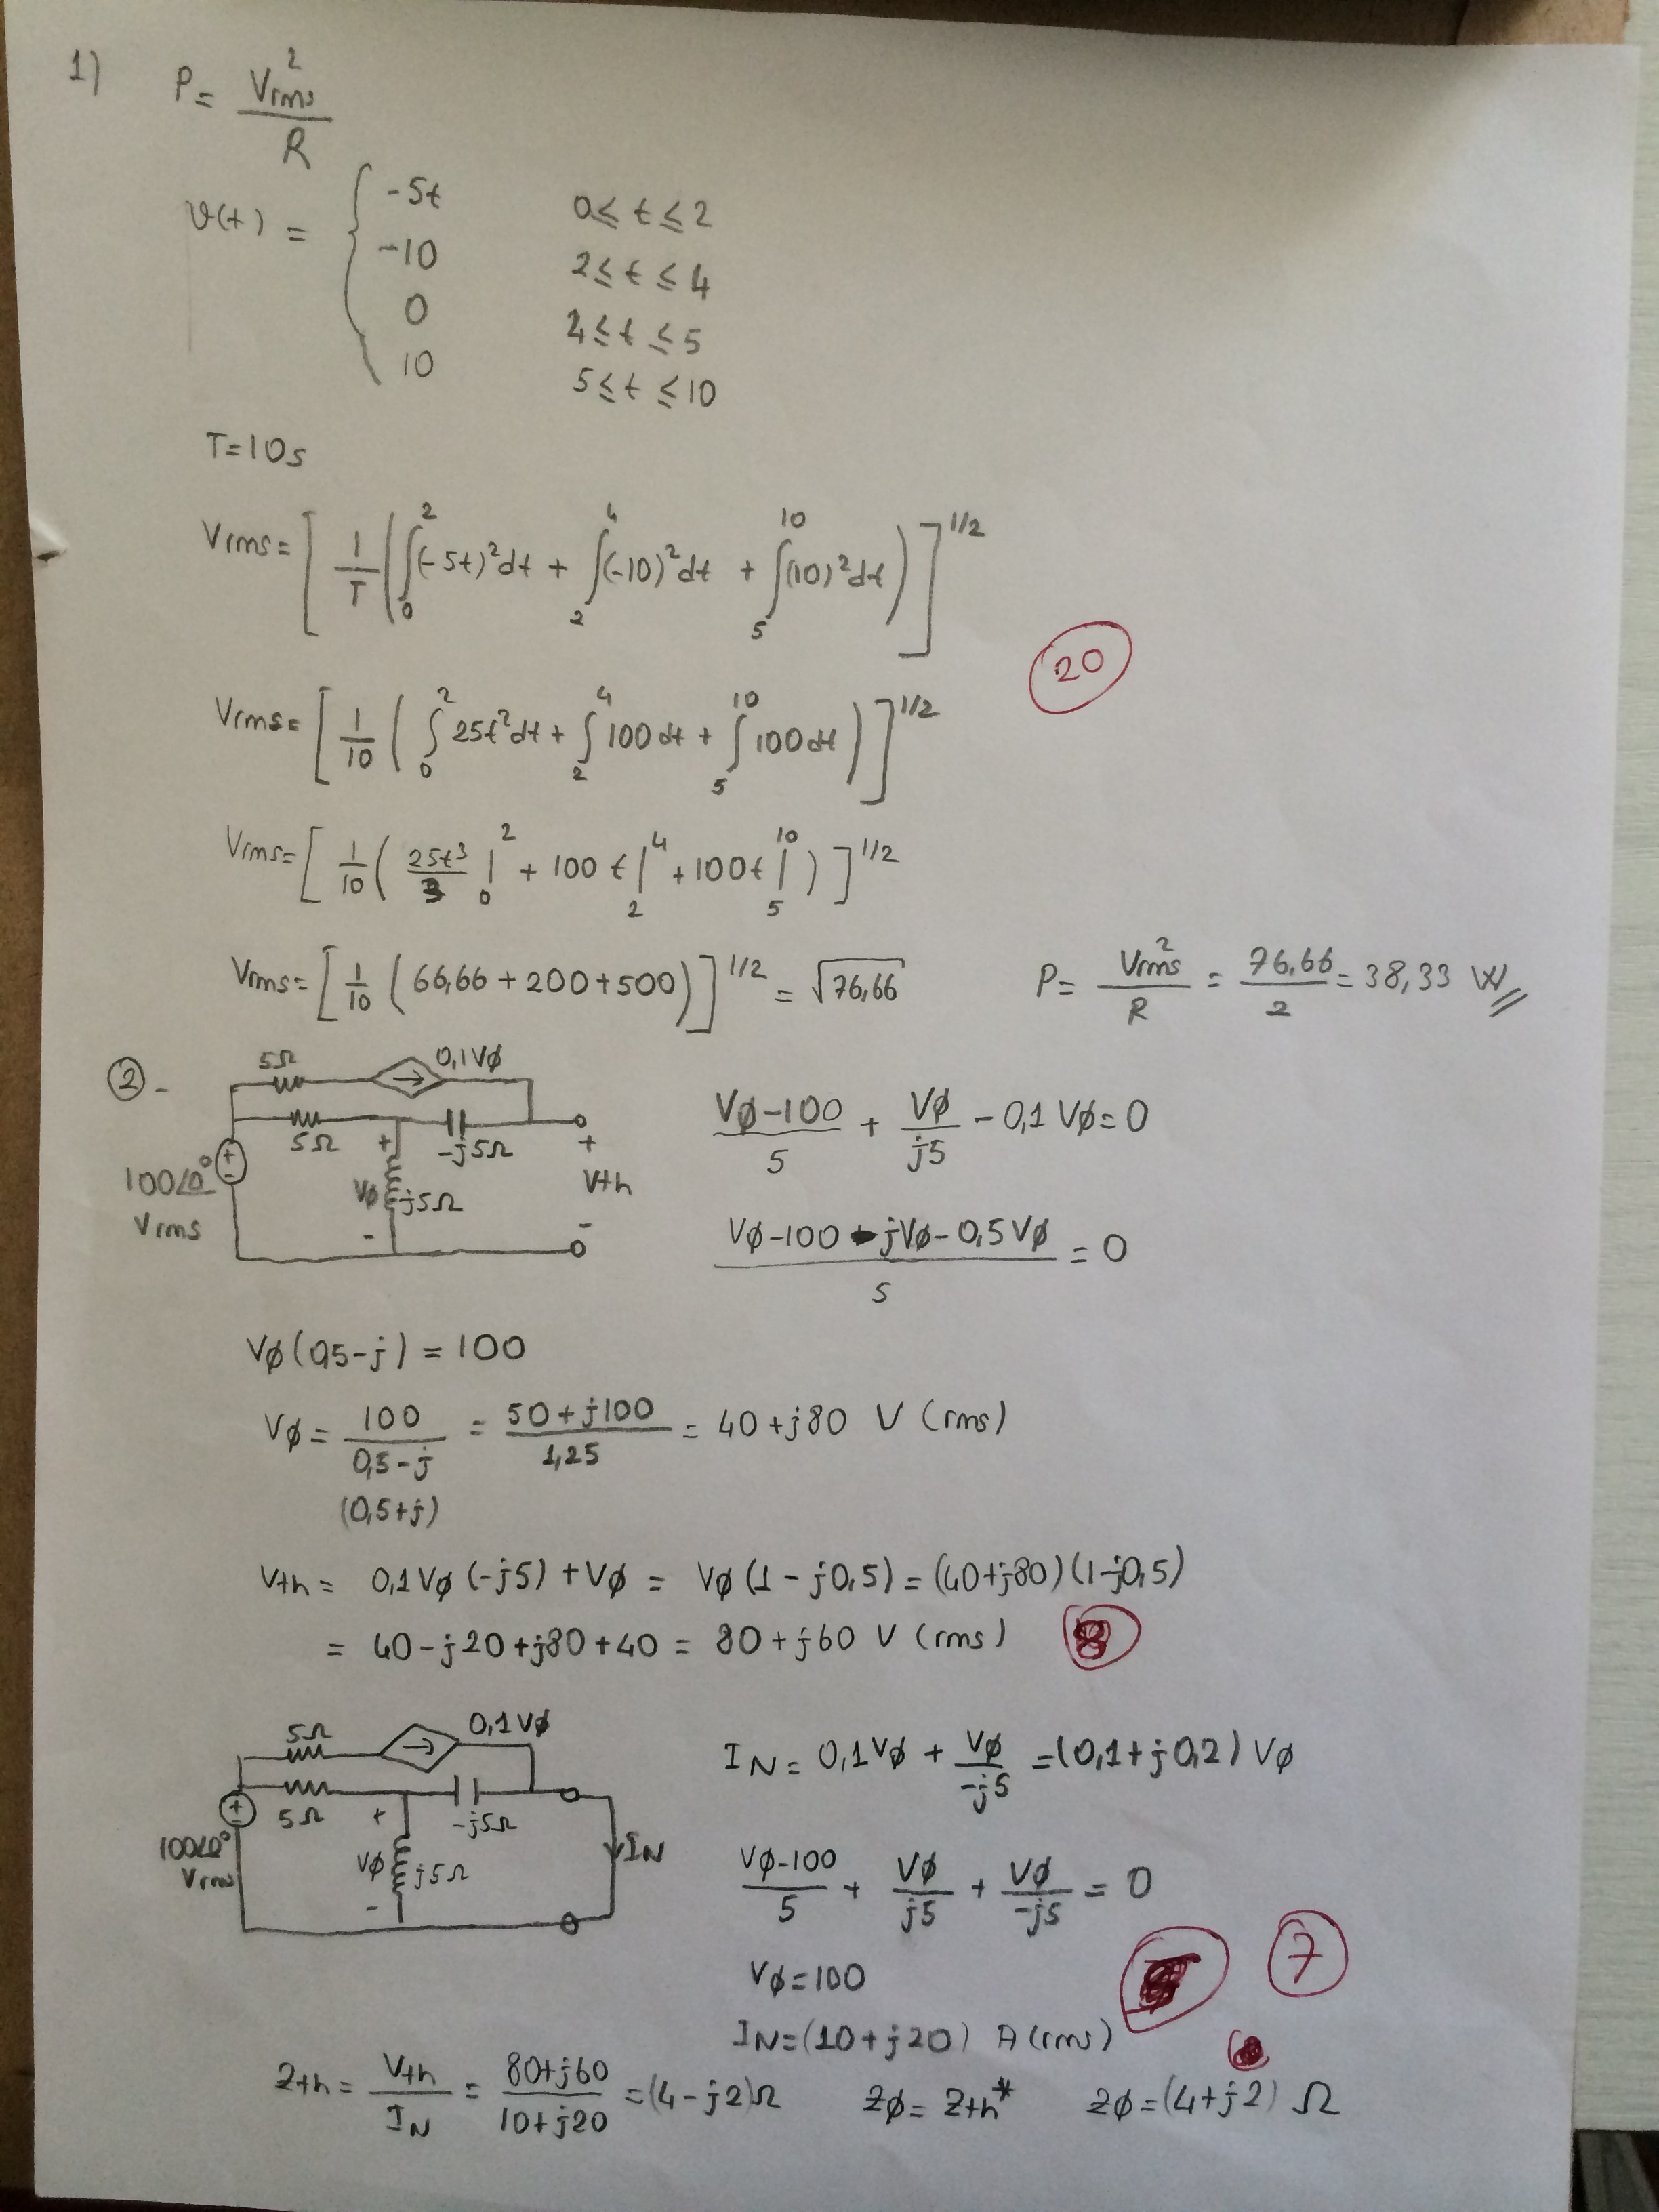 1)
P = Vrms² / R
v(t) = { -5t 0 ≤ t ≤ 2
-10 2 ≤ t ≤ 4
0 4 ≤ t ≤ 5
10 5 ≤ t ≤ 10
T=10s
Vrms = [ 1/T ( ∫₀² (-5t)² dt + ∫₂⁴ (-10)² dt + ∫₅¹⁰ (10)² dt ) ]^1/2
20
Vrms = [ 1/10 ( ∫₀² 25t² dt + ∫₂⁴ 100 dt + ∫₅¹⁰ 100 dt ) ]^1/2
Vrms = [ 1/10 ( 25t³/3 |₀² + 100 t |₂⁴ + 100t |₅¹⁰ ) ]^1/2
Vrms = [ 1/10 ( 66,66 + 200 + 500 ) ]^1/2 = √76,66
P = Vrms² / R = 76,66 / 2 = 38,33 W
2 -
5Ω 0,1Vø
5Ω + -j5Ω +
100∠0° Vrms + - Vø j5Ω - Vth -
(Vø-100)/5 + Vø/j5 - 0,1 Vø = 0
(Vø-100 - jVø - 0,5Vø)/5 = 0
Vø(0,5-j) = 100
Vø = 100/(0,5-j) = (50+j100)/1,25 = 40+j80 V (rms)
(0,5+j)
Vth = 0,1Vø (-j5) + Vø = Vø (1 - j0,5) = (40+j80)(1-j0,5)
= 40-j20+j80+40 = 80+j60 V (rms)
8
5Ω 0,1Vø
5Ω + -j5Ω
100∠0° Vrms + - Vø j5Ω - IN
IN = 0,1Vø + Vø/-j5 = (0,1+j0,2) Vø
(Vø-100)/5 + Vø/j5 + Vø/-j5 = 0
7
Vø=100
IN=(10+j20) A (rms)
Zth = Vth/IN = (80+j60)/(10+j20) = (4-j2)Ω Zø = Zth* Zø = (4+j2) Ω